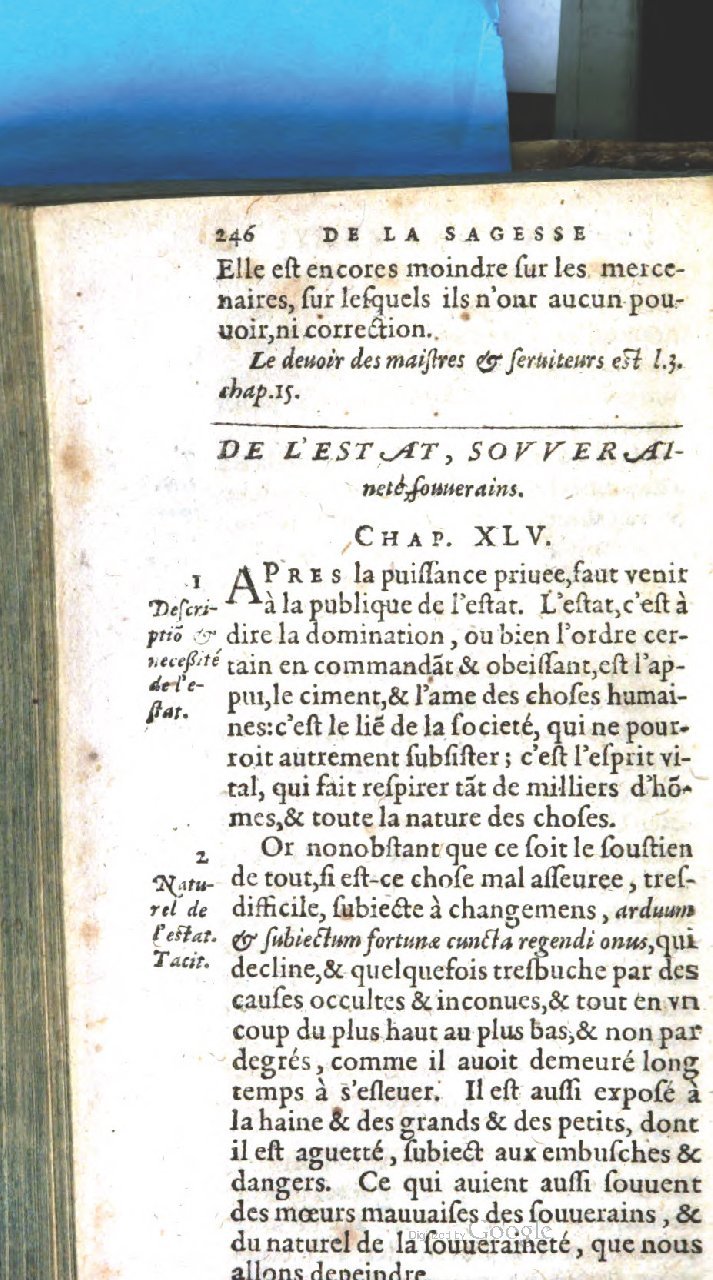 246 DE LA SAGESSE
Elle eſt encores moindre ſur les merce-
naires, ſur leſquels ils n'ont aucun pou-
uoir, ni correction.
Le deuoir des maiſtres & ſeruiteurs eſt l.3.
chap.15.
DE L'ESTAT, SOVVERAI-
neté, ſouuerains.
CHAP. XLV.
1
Deſcri-
ptiō &
neceßité
de l'e-
ſtat.
APRES la puiſſance priuee, faut venir
à la publique de l'eſtat. L'eſtat, c'eſt à
dire la domination, ou bien l'ordre cer-
tain en commandãt & obeiſſant, eſt l'ap-
pui, le ciment, & l'ame des choſes humai-
nes: c'eſt le liē de la ſocieté, qui ne pour-
roit autrement ſubſiſter; c'eſt l'eſprit vi-
tal, qui fait reſpirer tãt de milliers d'hō-
mes, & toute la nature des choſes.
2
Natu-
rel de
l'eſtat.
Tacit.
Or nonobſtant que ce ſoit le ſouſtien
de tout, ſi eſt-ce choſe mal aſſeuree, treſ-
difficile, ſubiecte à changemens, arduum
& ſubiectum fortunæ cuncta regendi onus, qui
decline, & quelquefois treſbuche par des
cauſes occultes & inconues, & tout en vn
coup du plus haut au plus bas, & non par
degrés, comme il auoit demeuré long
temps à s'eſleuer. Il eſt auſſi expoſé à
la haine & des grands & des petits, dont
il eſt aguetté, ſubiect aux embuſches &
dangers. Ce qui auient auſſi ſouuent
des mœurs mauuaiſes des ſouuerains, &
du naturel de la ſouueraineté, que nous
allons depeindre.
Digitized by Google